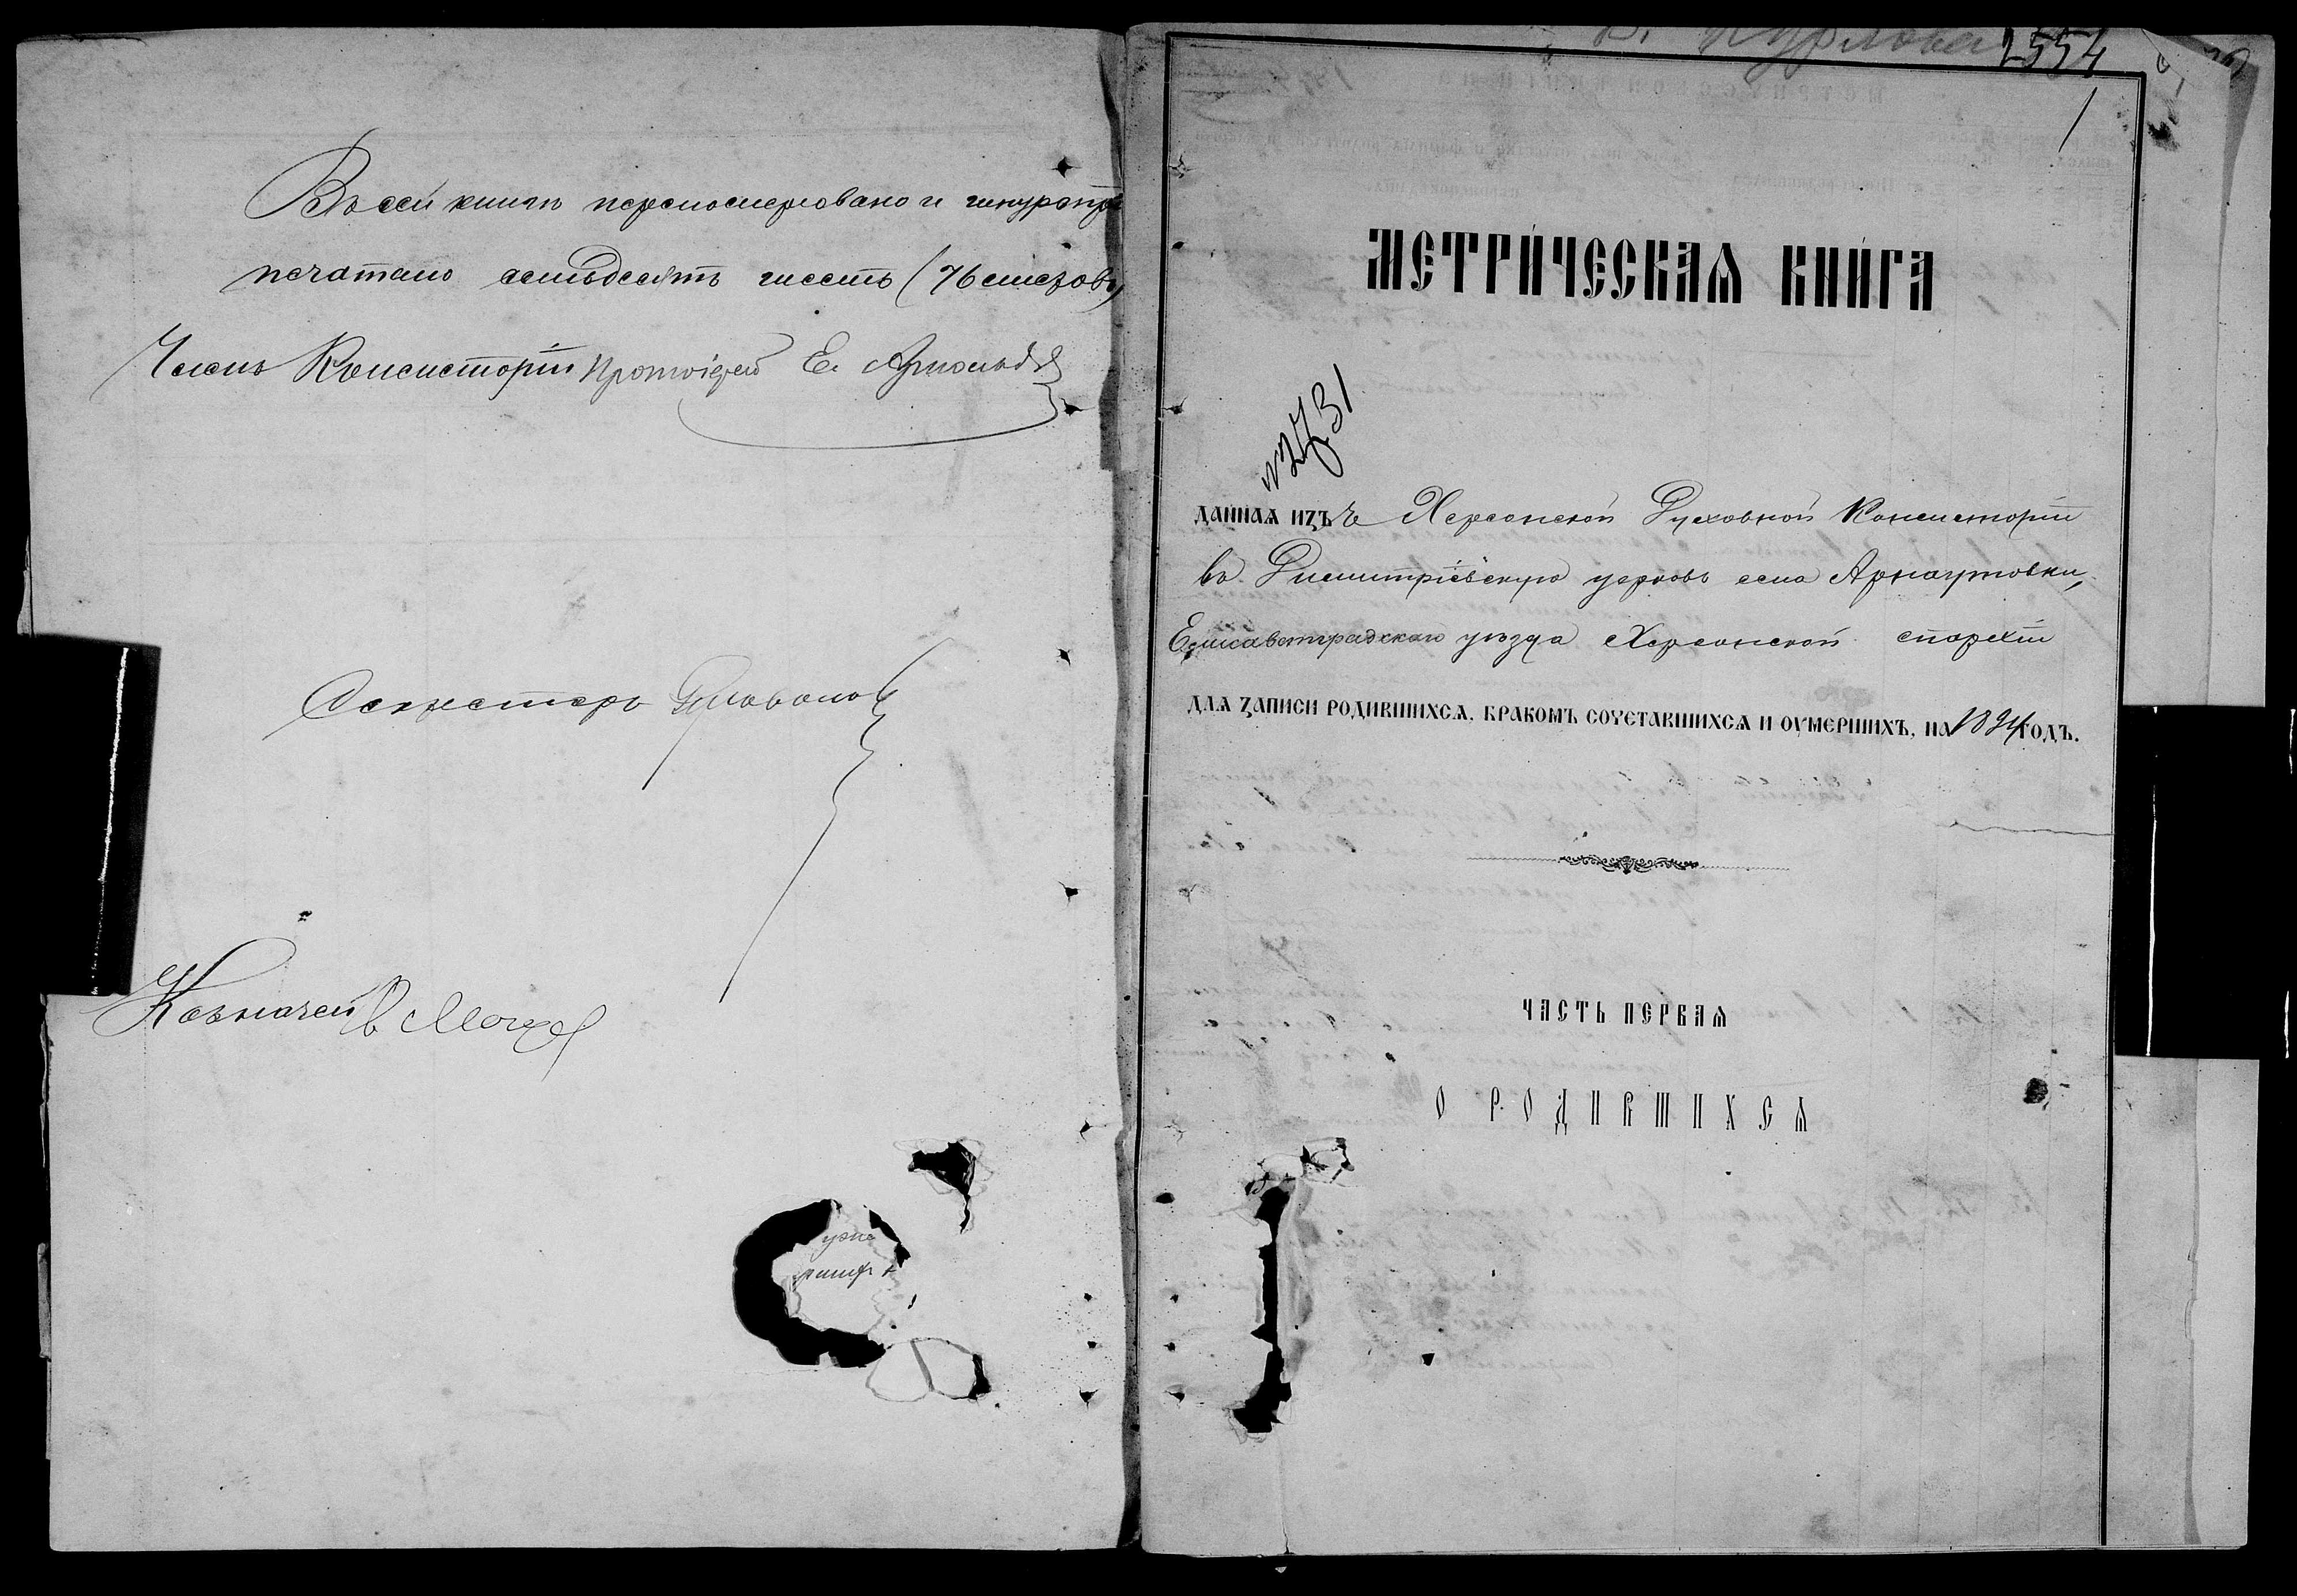 Въ сей книгѣ перенумеровано и шнуропри
печатано семьдесятъ шесть (76 листовъ)
Членъ Консисторіи Протоіерей Е. Арнольдъ
Секретарь
Казначей В.
2554
1
МЕТРИ́ЧЕСКАѦ КНИ́ГА
№ 2731
ДАННАѦ ИЗЪ Херсонской Духовной Консисторіи
въ Димитріевскую церковь села Арнаутовки,
Елисаветградскаго уѣзда Херсонской епархіи
ДЛѦ ЗАПИСИ РОДИВШИХСѦ, БРАКОМЪ СОЧЕТАВШИХСѦ И ОУМЕРШИХЪ, НА 1894 ГОДЪ.
ЧАСТЬ ПЕРВАѦ
О РОДИВШИХСѦ